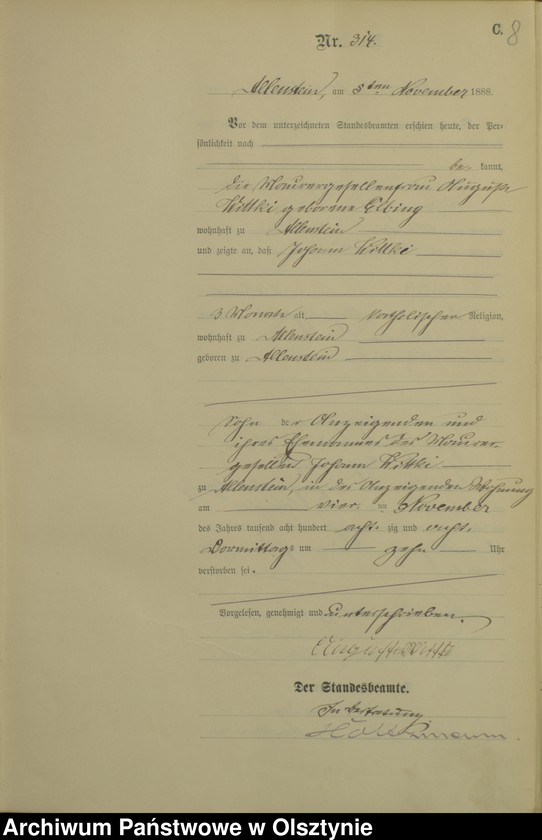 C. 8
Nr. 314.
Allenstein, am 5ten November 1888.
Vor dem unterzeichneten Standesbeamten erschien heute, der Per-
sönlichkeit nach
be kannt,
die Maurergesellenfrau Auguste
Wittki geborene Elbing
wohnhaft zu Allenstein
und zeigte an, daß Johann Wittki
3 Monate alt, katholischer Religion,
wohnhaft zu Allenstein
geboren zu Allenstein
Sohn der Anzeigenden und
ihres Ehemannes des Maurer-
gesellen Johann Wittki
zu Allenstein, in der Anzeigenden Wohnung
am vier ten November
des Jahres tausend acht hundert acht zig und acht
Vormittags um zehn Uhr
verstorben sei.
Vorgelesen, genehmigt und unterschrieben.
August Wittki
Der Standesbeamte.
In Vertretung
Archiwum Państwowe w Olsztynie